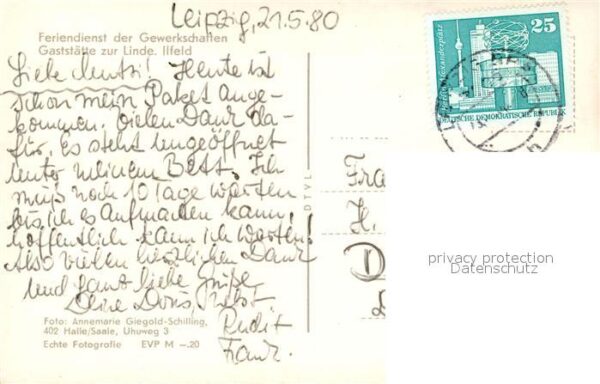 Leipzig, 21.5.80
Feriendienst der Gewerkschaften
Gaststätte zur Linde. Ilfeld
Liebe! Heute ist
schon mein Paket ange-
kommen. Vielen Dank da-
für. Es steht ungeöffnet
unter meinem Bett. Ich
muß noch 10 Tage warten
bis ich es Aufmachen kann,
hoffentlich kann ich warten!
Also vielen herzlichen Dank
und ganz liebe Grüße,
Deine Doris, nebst
Rudit
Frank.
Foto: Annemarie Giegold-Schilling,
402 Halle/Saale, Uhuweg 3
Echte Fotografie EVP M –.20
DTVL
25
Alexanderplatz
DEUTSCHE DEMOKRATISCHE REPUBLIK
Fra
H.
D
privacy protection
Datenschutz